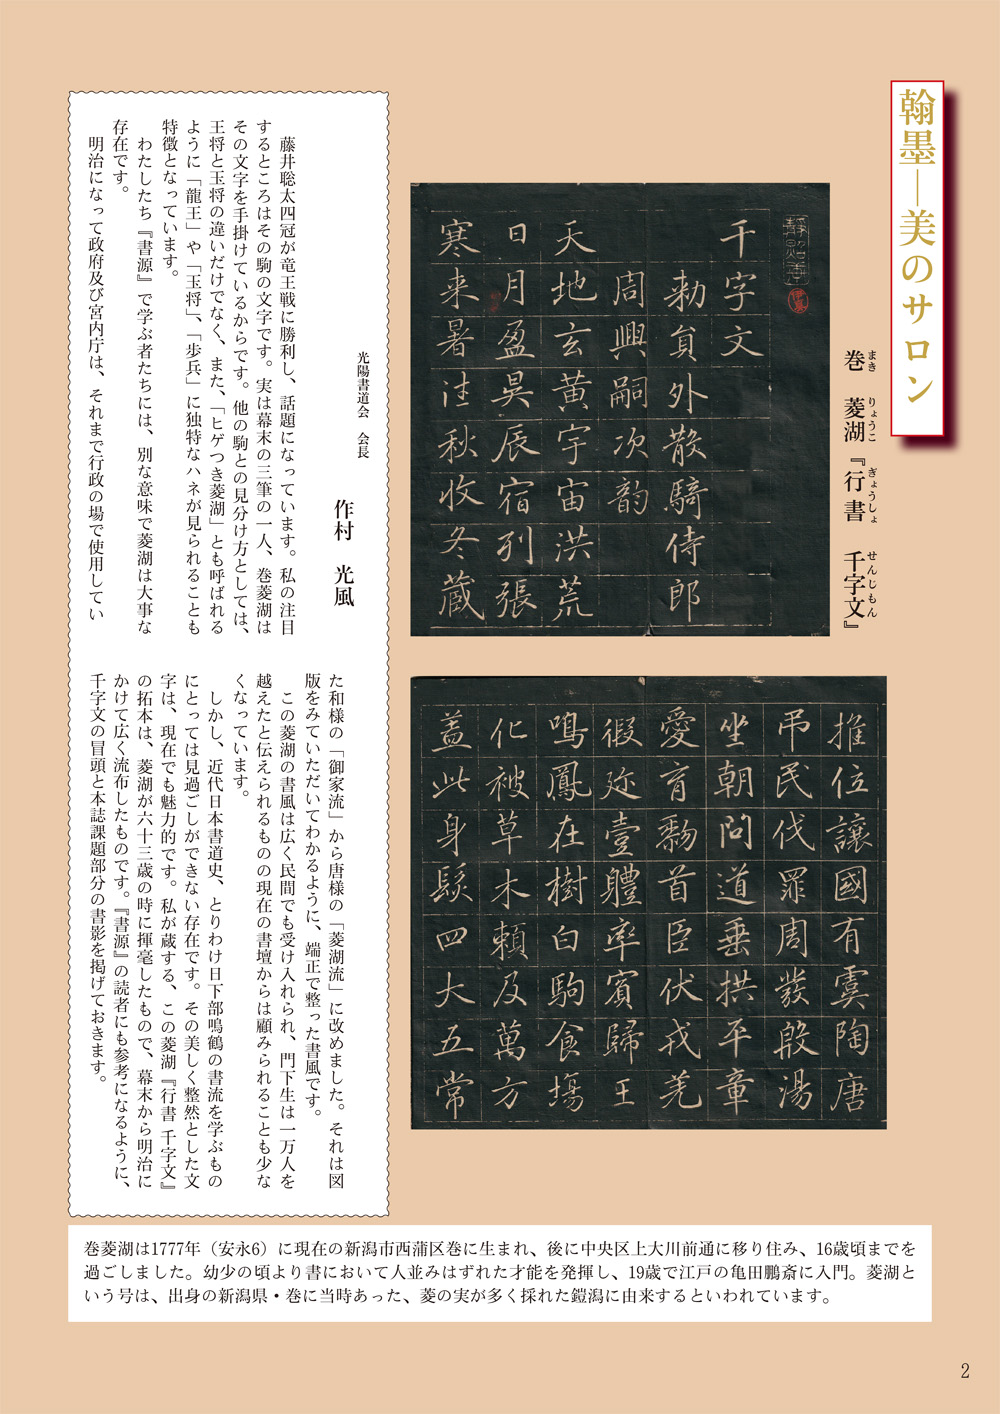 翰墨—美のサロン
巻 菱湖『行書 千字文』
まき りょうこ ぎょうしょ せんじもん
千字文
勅員外散騎侍郎
周興嗣次韵
天地玄黄宇宙洪荒
日月盈昃辰宿列張
寒来暑往秋收冬蔵
推位讓國有虞陶唐
吊民伐罪周發殷湯
坐朝問道垂拱平章
愛育黎首臣伏戎羌
遐迩壹體率賓歸王
鳴鳳在樹白駒食場
化被草木頼及萬方
蓋此身髮四大五常
光陽書道会 会長
作村 光風
藤井聡太四冠が竜王戦に勝利し、話題になっています。私の注目
するところはその駒の文字です。実は幕末の三筆の一人、巻菱湖は
その文字を手掛けているからです。他の駒との見分け方としては、
王将と玉将の違いだけでなく、また、「ヒゲつき菱湖」とも呼ばれる
ように「龍王」や「玉将」、「歩兵」に独特なハネが見られることも
特徴となっています。
わたしたち『書源』で学ぶ者たちには、別な意味で菱湖は大事な
存在です。
明治になって政府及び宮内庁は、それまで行政の場で使用してい
た和様の「御家流」から唐様の「菱湖流」に改めました。それは図
版をみていただいてわかるように、端正で整った書風です。
この菱湖の書風は広く民間でも受け入れられ、門下生は一万人を
越えたと伝えられるものの現在の書壇からは顧みられることも少な
くなっています。
しかし、近代日本書道史、とりわけ日下部鳴鶴の書流を学ぶもの
にとっては見過ごしができない存在です。その美しく整然とした文
字は、現在でも魅力的です。私が蔵する、この菱湖『行書 千字文』
の拓本は、菱湖が六十三歳の時に揮毫したもので、幕末から明治に
かけて広く流布したものです。『書源』の読者にも参考になるように、
千字文の冒頭と本誌課題部分の書影を掲げておきます。
巻菱湖は1777年（安永6）に現在の新潟市西蒲区巻に生まれ、後に中央区上大川前通に移り住み、16歳頃までを
過ごしました。幼少の頃より書において人並みはずれた才能を発揮し、19歳で江戸の亀田鵬斎に入門。菱湖と
いう号は、出身の新潟県・巻に当時あった、菱の実が多く採れた鎧潟に由来するといわれています。
2